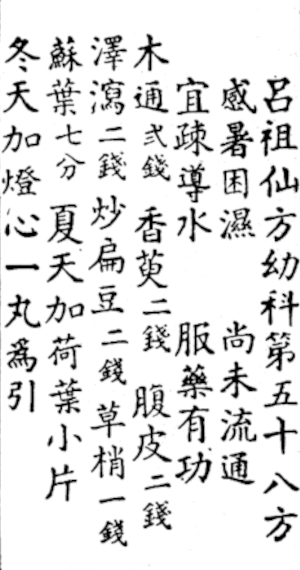 呂祖仙方幼科第五十八方
感暑困濕 尚未流通
宜疎導水 服藥有功
木通弍錢 香萸二錢 腹皮二錢
澤瀉二錢 炒扁豆二錢 草梢一錢
蘇葉七分 夏天加荷葉小片
冬天加燈心一丸為引